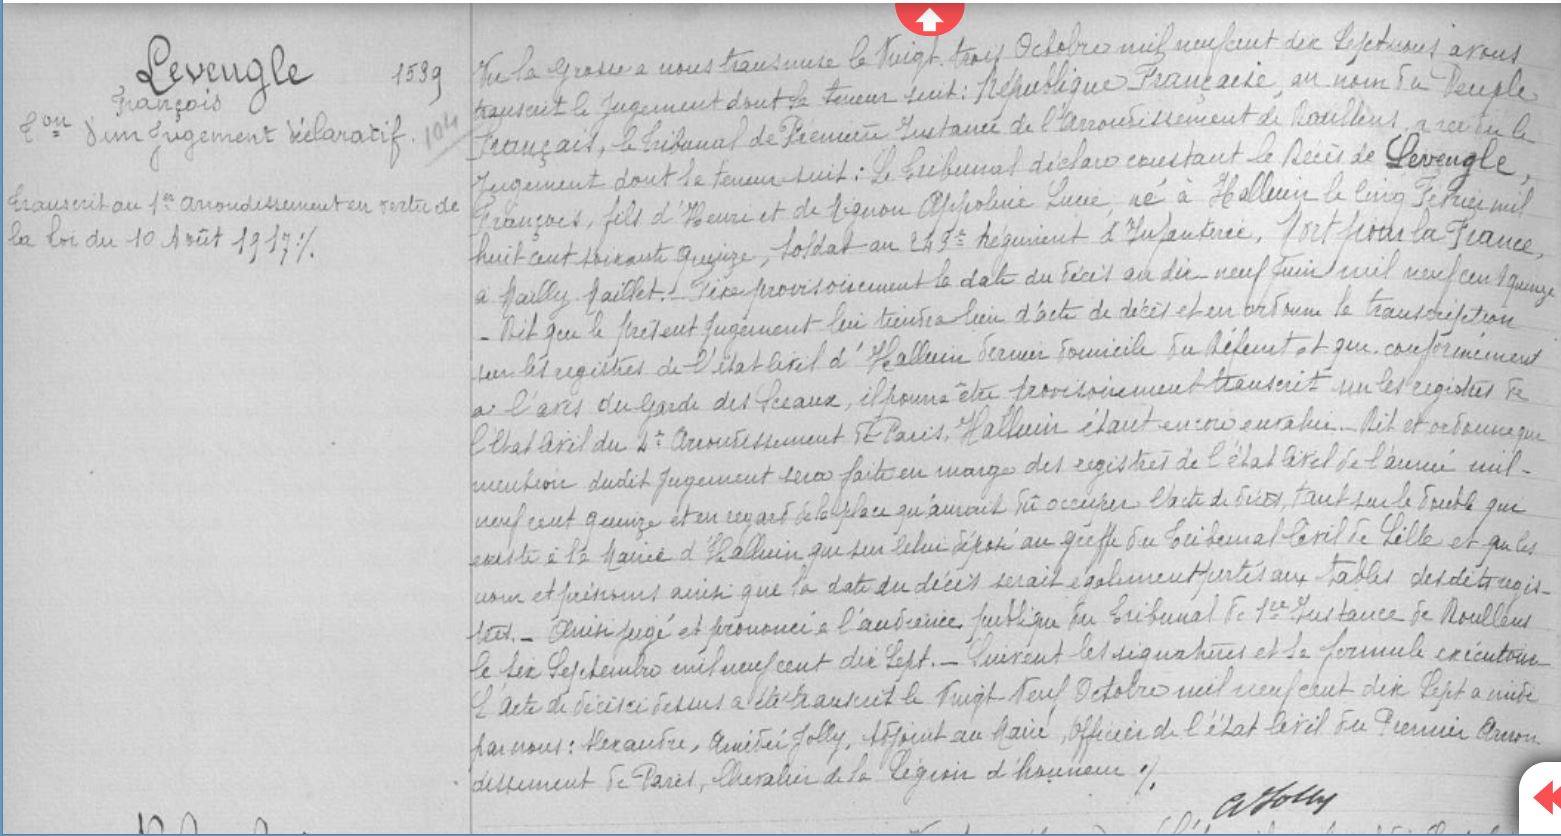 Levengle
1539
François
Con d'un Jugement déclaratif.
104
Transcrit au 1er arrondissement en vertu de
la loi du 10 Août 1917 ./.
Vu la Grosse a nous transmise le Vingt trois Octobre mil neuf cent dix Sept nous avons
transcrit le Jugement dont la teneur suit : République Française, au nom du Peuple
Français, le Tribunal de Première Instance de l'Arrondissement de Doullens, a rendu le
Jugement dont la teneur suit : Le Tribunal déclare constant le Décès de Levengle,
François, fils d'Henri et de Pignon Appoline Lucie, né à Halluin le Cinq Février mil
huit cent soixante Quinze, Soldat au Régiment d'Infanterie, Mort pour la France,
a Mailly Maillet. _ Fixe provisoirement la date du décès au dix neuf Juin mil neuf cent quinze
_ Dit que le présent Jugement lui tiendra lieu d'acte de décès et en ordonne la transcription
sur les registres de l'état Civil d'Halluin dernier domicile du Défunt et que conformément
a l'avis du Garde des Sceaux, il pourra être provisoirement transcrit sur les registres de
l'état Civil du Arrondissement de Paris, Halluin étant encore envahi. _ Dit et ordonne que
mention dudit Jugement sera faite en marge des registres de l'état Civil de l'année mil-
neuf cent quinze et en regard de la place qu'aurait dû occuper l'acte de décès, tant sur le double qui
existe à la Mairie d'Halluin que sur celui déposé au greffe du Tribunal Civil de Lille et que les
nom et prénoms ainsi que la date du décès serait également portés aux tables desdits regis-
tres. _ Ainsi jugé et prononcé à l'audience publique du Tribunal de 1re Instance de Doullens
le six Septembre mil neuf cent dix Sept. _ Suivent les signatures et la formule exécutoire
L'Acte de décès ci dessus a été transcrit le Vingt Neuf Octobre mil neuf cent dix Sept a midi
par nous : Alexandre, Amédée Jolly, Adjoint au Maire, Officier de l'état Civil du Premier Arron-
dissement de Paris, Chevalier de la Légion d'honneur ./.
A Jolly